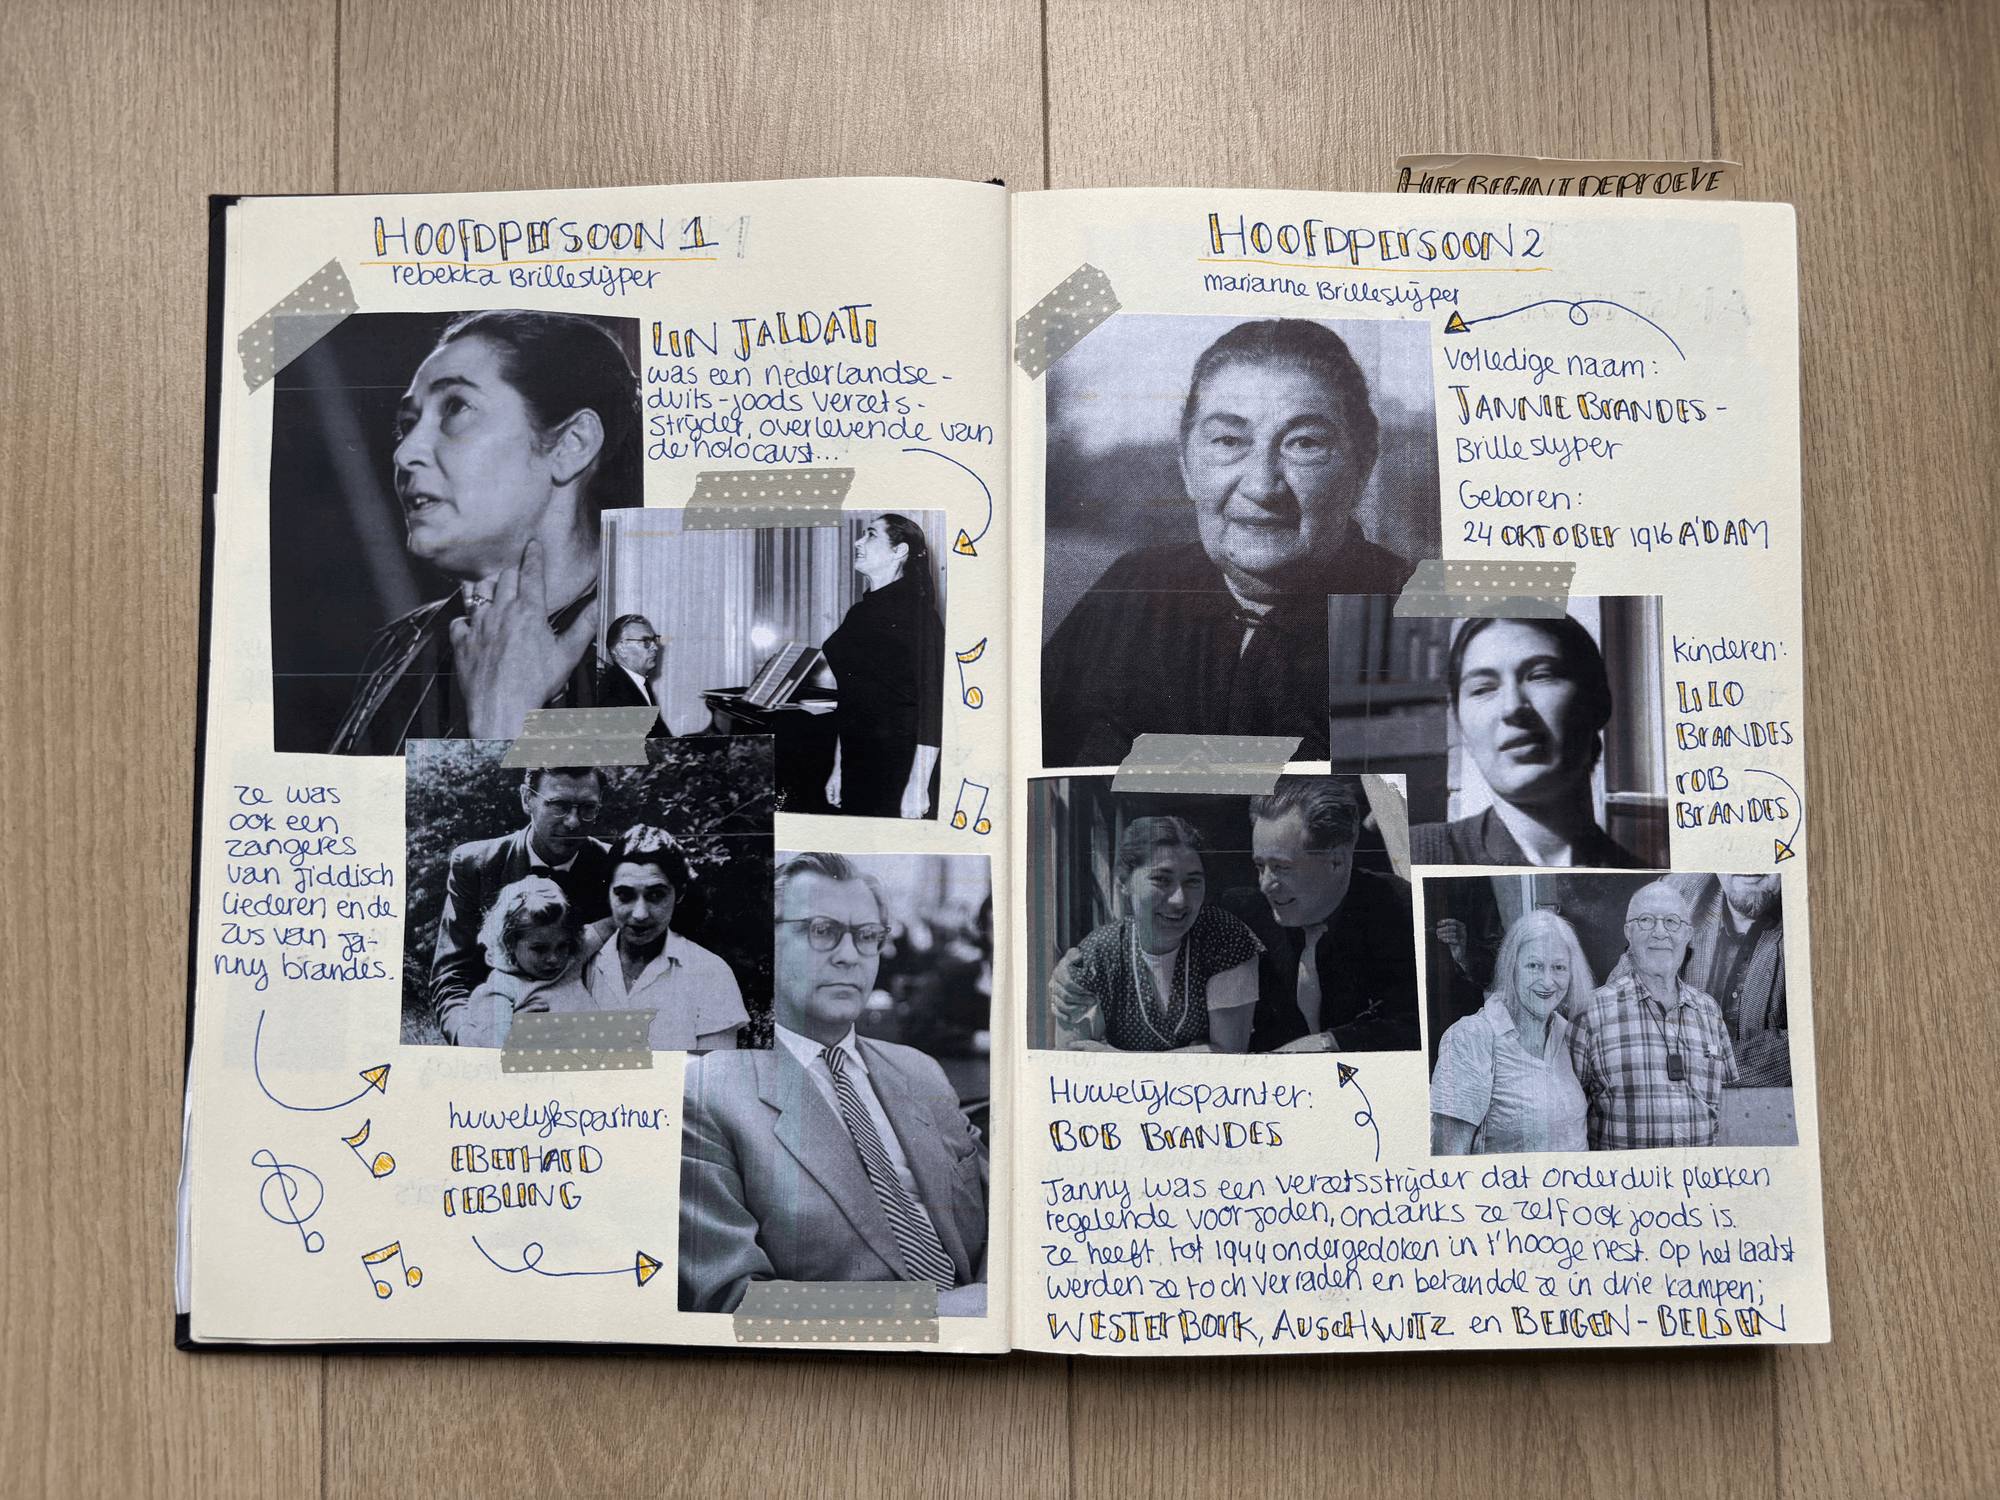 HIER BEGINT DE PROEVE
HOOFDPERSOON 1
rebekka Brilleslijper
LIN JALDATI
was een nederlandse-
duits-joods verzets-
strijder, overlevende van
de holocaust...
ze was
ook een
zangeres
van Jiddisch
liederen en de
zus van ja-
nny brandes.
huwelijkspartner:
EBERHARD
REBLING
HOOFDPERSOON 2
marianne Brilleslijper
volledige naam:
JANNIE BRANDES-
Brilleslijper
Geboren:
24 OKTOBER 1916 A'DAM
kinderen:
LILO
BRANDES
ROB
BRANDES
Huwelijksparnter:
BOB BRANDES
Janny was een verzetsstrijder dat onderduik plekken
regelende voor joden, ondanks ze zelf ook joods is.
ze heeft tot 1944 ondergedoken in t'hooge nest. Op het laatst
werden ze toch verraden en belandde ze in drie kampen;
WESTERBORK, AUSCHWITZ en BERGEN-BELSEN